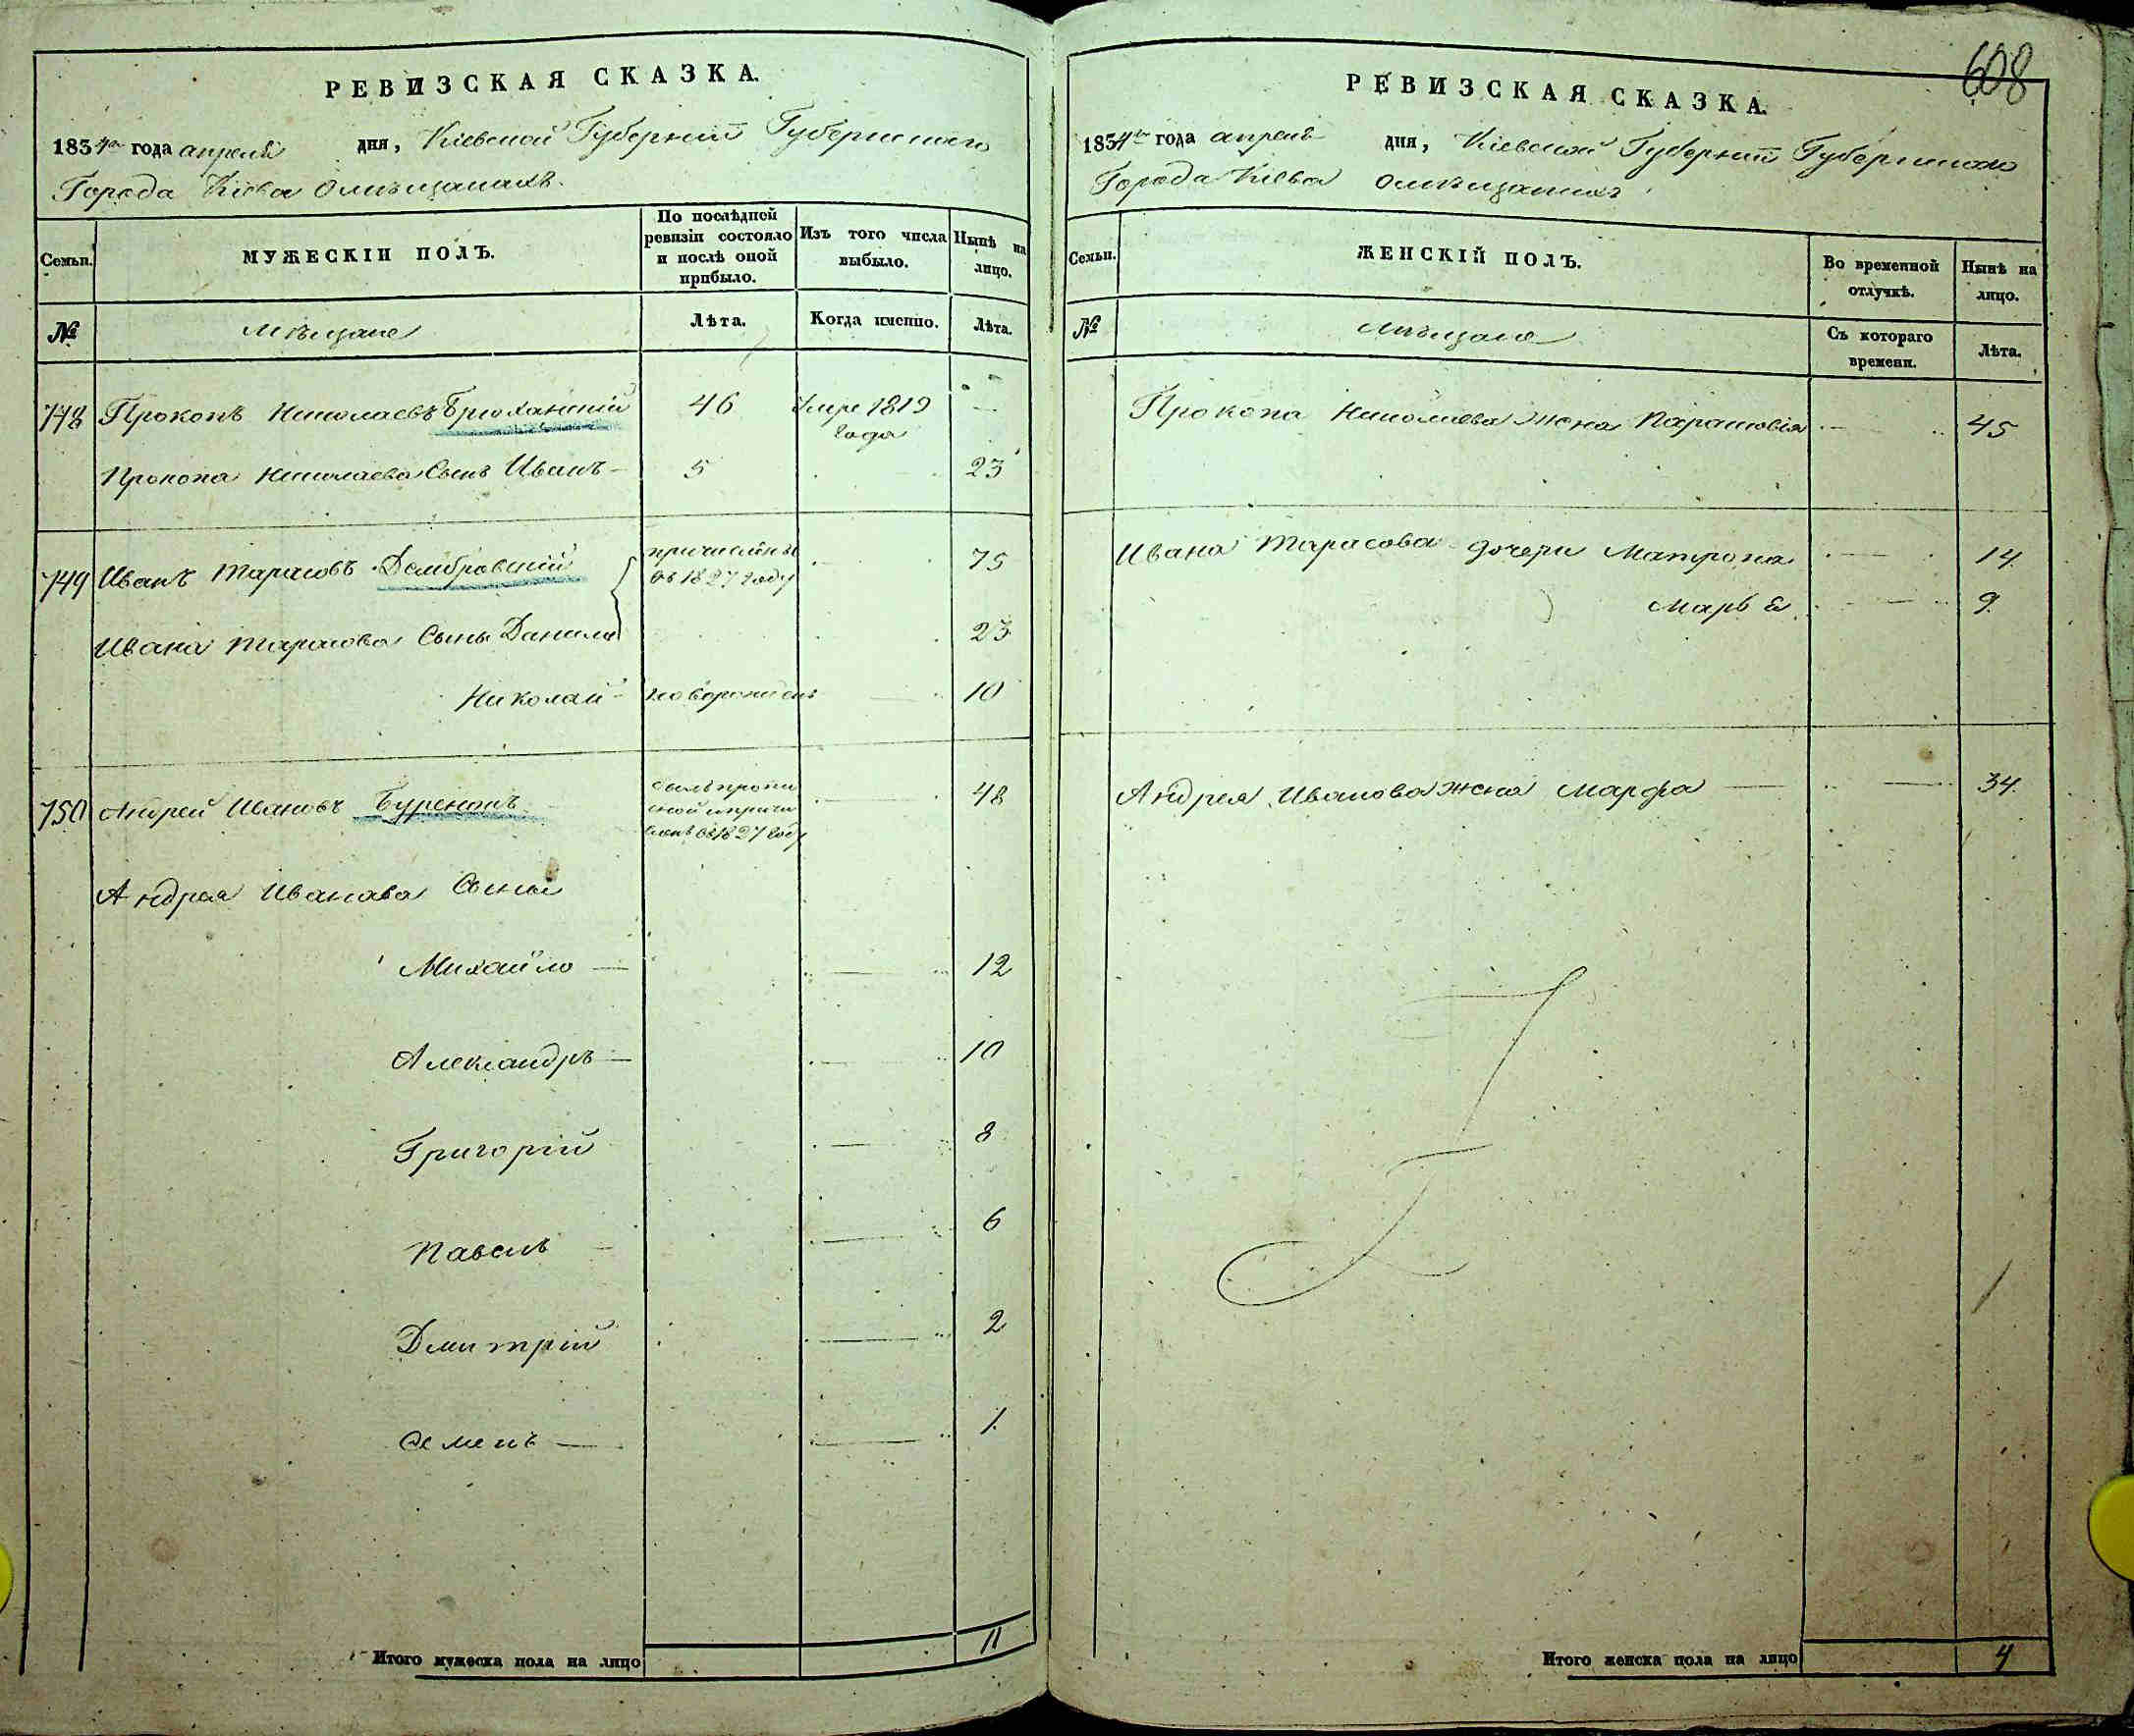 РЕВИЗСКАЯ СКАЗКА.
1834го года апреля дня, Кіевской Губерніи Губернскаго
Города Кіева о мѣщанахъ.
Семьи.
МУЖЕСКІЙ ПОЛЪ.
По послѣдней ревизіи состояло и послѣ оной прибыло.
Изъ того числа выбыло.
Нынѣ на лицо.
№
Мѣщане
Лѣта.
Когда именно.
Лѣта.
748 Прокопъ Николаевъ Брюханскій 46 Умре 1819 года —
Прокопа Николаева Сынъ Иванъ 5 23
749 Иванъ Тарасовъ Домбровскій причислены въ 1827 году 75
Ивана Тарасова Сыны Данило 23
Николай новорожденъ 10
750 Андрей Ивановъ Буренокъ 48
былъ пропи
ской и причи
сленъ въ 1827 году
Андрея Иванова Сыны
Михайло 12
Александръ 10
Григорій 8
Павелъ 6
Дмитрій 2
Семенъ 1.
Итого мужеска пола на лицо 11
608
РЕВИЗСКАЯ СКАЗКА.
1834го года апреля дня, Кіевской Губерніи Губернскаго
Города Кіева о мѣщанахъ
Семьи.
ЖЕНСКІЙ ПОЛЪ.
Во временной отлучкѣ.
Нынѣ на лицо.
№
Мѣщане
Съ котораго времени.
Лѣта.
Прокопа Николаева жена Парасковія 45
Ивана Тарасова дочери Матрона 14
Марья 9.
Андрея Иванова жена Марфа 34.
Итого женска пола на лицо 4